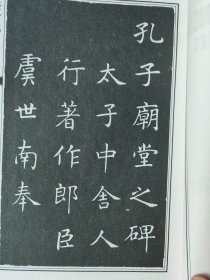 孔子廟堂之碑
太子中舍人
行著作郎臣
虞世南奉